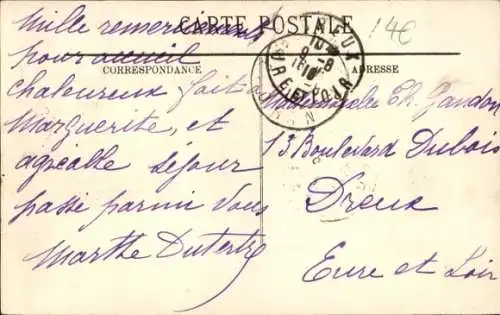 CARTE POSTALE
14€
CORRESPONDANCE
ADRESSE
Mille remerciements
pour accueil
chaleureux fait à
Marguerite, et
agréable séjour
passé parmi vous
Marthe Dutertre
Mademoiselle Th. Gandon
13 Boulevard Dubois
Dreux
Eure et Loir
DREUX
EURE-ET-LOIR